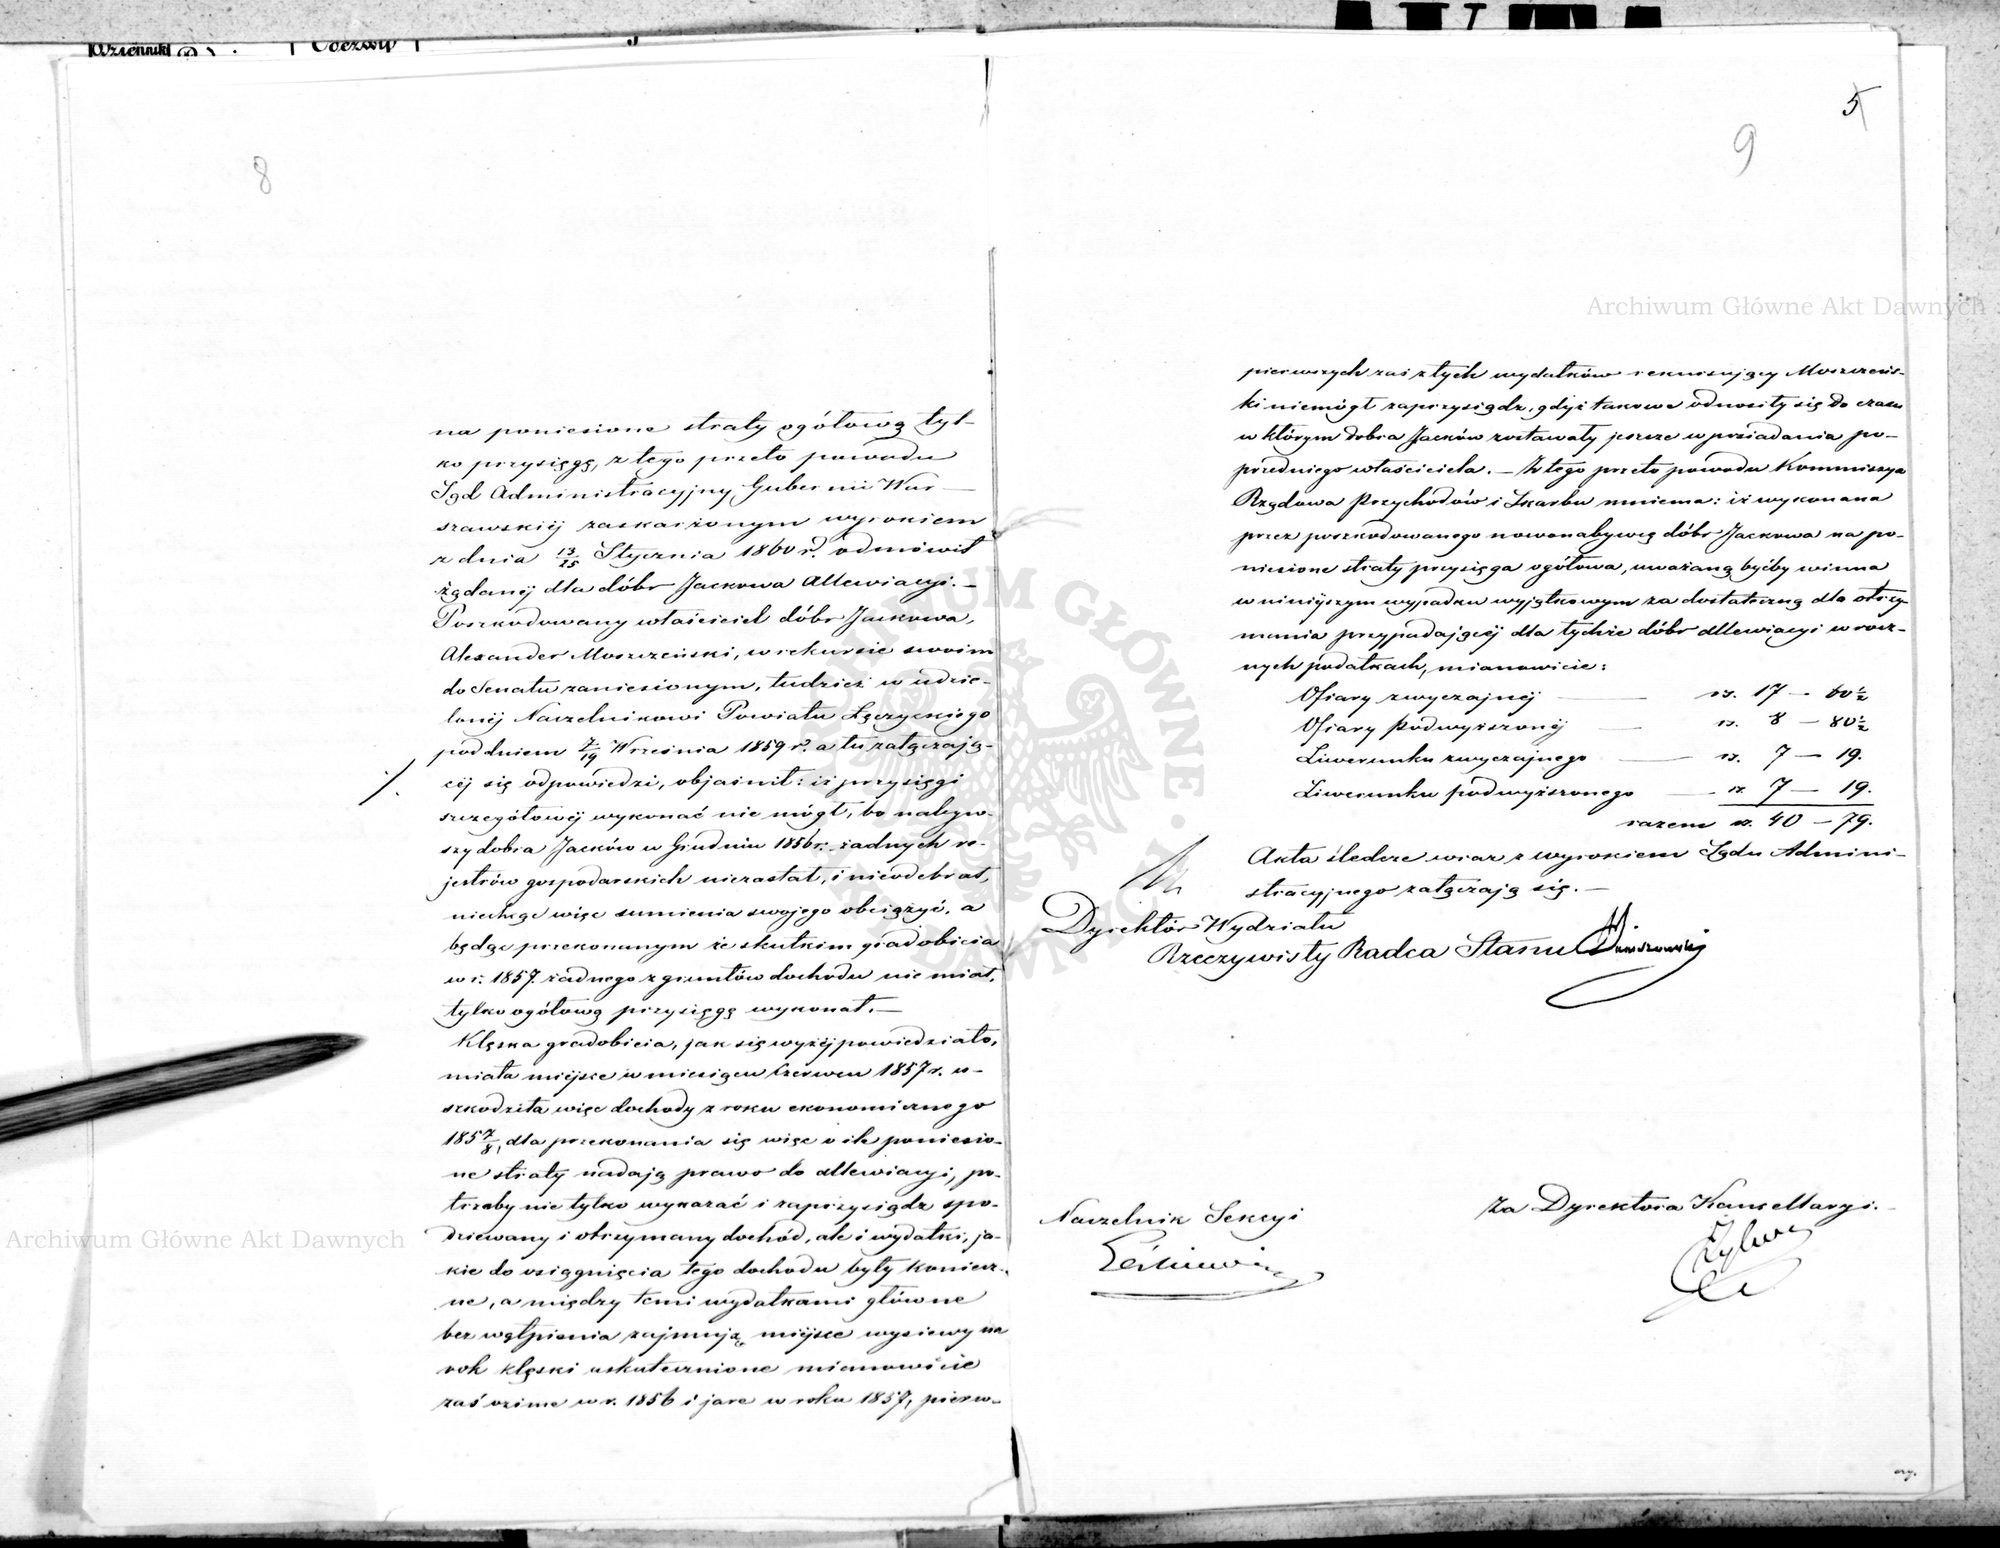 8
na poniesione straty ogółową tyl-
ko przysięgę, z tego przeto powodu
Sąd Administracyjny Gubernii War-
szawskiéj zaskarżonym wyrokiem
z dnia 13/25 Stycznia 1860 r. odmówił
żądanéj dla dóbr Jackowa Allewiacyi. —
Poszkodowany właściciel dóbr Jackowa,
Alexander Moszczeński, w rekursie swoim
do Senatu zaniesionym, tudzież w udzie-
lonéj Naczelnikowi Powiatu Łęczyckiego
pod dniem 7/19 Września 1859 r. a tu załączają-
céj się odpowiedzi, objaśnił: iż przysięgi
szczegółowéj wykonać nie mógł, bo nabyw-
szy dobra Jacków w Grudniu 1856 r. żadnych re-
jestrów gospodarskich niezastał, i nieodebrał,
niechcąc więc sumienia swojego obciążyć, a
będąc przekonanym że skutkiem gradobicia
w r. 1857. żadnego z gruntów dochodu nie miał,
tylko ogółową przysięgę wykonał. —
Klęska gradobicia, jak się wyżéj powiedziało,
miała miéjsce w miesiącu Czerwcu 1857 r. u-
szkodziła więc dochody z roku ekonomicznego
1857/8, dla przekonania się więc o ile poniesio-
ne straty nadają prawo do allewiacyi, po-
trzeby nie tylko wykazać i zaprzysiądz spo-
dziewany i otrzymany dochód, ale i wydatki, ja-
kie do osiągnięcia tego dochodu były koniecz-
ne, a między temi wydatkami główne
bez wątpienia zajmują miéjsce wysiewy na
rok klęski uskutecznione mianowicie
zaś ozime w r. 1856 i jare w roku 1857, pierw-
5
9
pierwszych zaś z tych wydatków rekursujący Moszczeńs-
ki niemógł zaprzysiądz, gdyż takowe odnosiły się do czasu
w którym dobra Jacków zostawały jeszcze w posiadaniu po-
przedniego właściciela. — Z tego przeto powodu Kommissya
Rządowa Przychodów i Skarbu mniema: iż wykonana
przez poszkodowanego nowonabywcę dóbr Jackowa na po-
niesione straty przysięga ogółowa, uważaną byćby winna
w niniéjszym wypadku wyjątkowym za dostateczną dla otrzy-
mania przypadającéj dla tychże dóbr allewiacyi w rocz-
nych podatkach, mianowicie:
Ofiary zwyczajnéj — rs. 17 — 60½
Ofiary podwyższonéj — rs. 8 — 80½
Liwerunku zwyczajnego — rs. 7 — 19.
Liwerunku podwyższonego — rs. 7 — 19.
razem rs. 40 — 79.
Akta śledcze wraz z wyrokiem Sądu Admini-
stracyjnego załączają się. —
Dyrektor Wydziału
Rzeczywisty Radca Stanu
Naczelnik Sekcyi
Za Dyrektora Kancellaryi.
Archiwum Główne Akt Dawnych
Archiwum Główne Akt Dawnych
ARCHIWUM GŁÓWNE AKT DAWNYCH